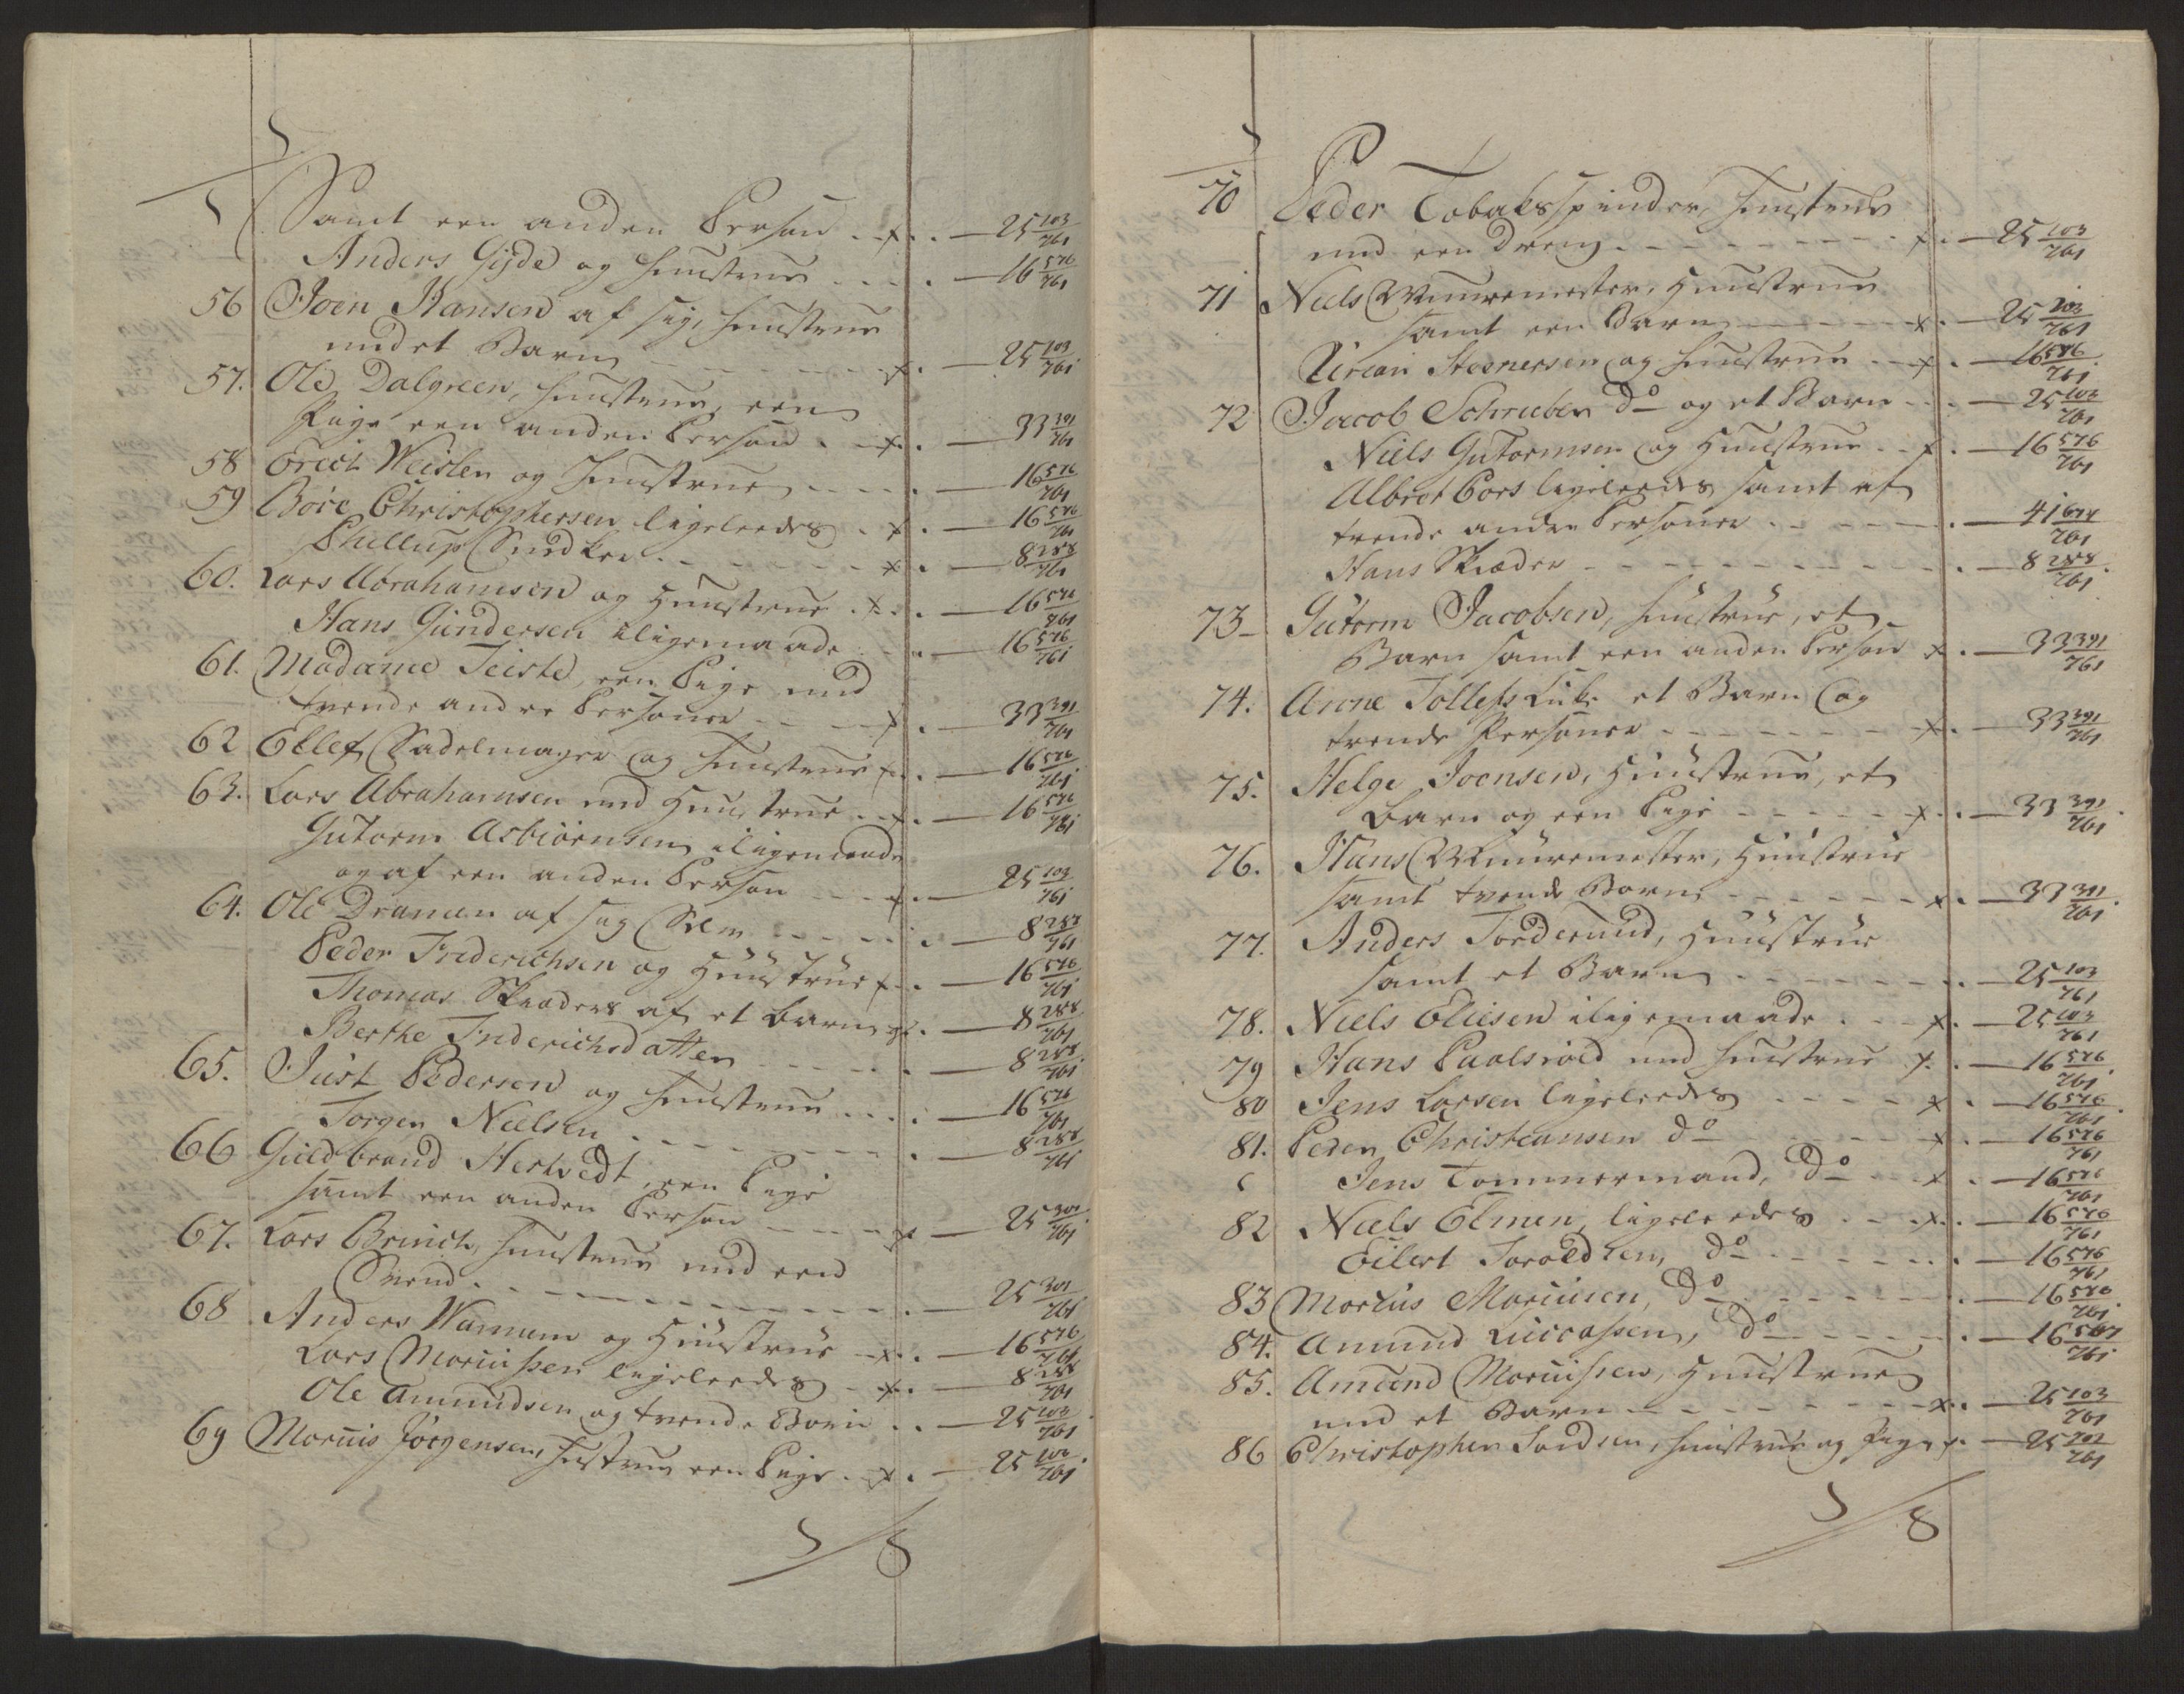 Samt een anden Person . x . . — 25 103/761
Anders Gyde og Huustrue . . . . — 16 576/761
56 Joen Hansen af sig, Huustrue
med et Barn - - - - - x . — 25 103/761
57. Ole Dalgreen, Huustrue, een
Pige een anden Person . x . — 33 391/761
58 Erich Weislen og Huustrue - - - . — 16 576/761
59 Böre Christophersen ligeleedes . x . — 16 576/761
Phillip - - - - - x . — 8 288/761
60. Lars Abrahamsen og Huustrue . x . . — 16 576/761
Hans Gundersen iligemaade . — 16 576/761
61. Madame Teiste, een Pige med
tvende andre Personer - - - x . — 33 391/761
62 Ellef Sadelmager og Huustrue x . — 16 576/761
63. Lars Abrahamsen med Huustrue . x . — 16 576/761
Gutorm Asbiörnsen iligemaade
og af een anden Person - - - x . — 25 103/761
64. Ole Dramen af sig Selv - - - . — 8 288/761
Peder Friderichsen og Huustrue x . — 16 576/761
Thomas Skræders af et Barn x . — 8 288/761
Berthe Friderichsdatter - - - . — 8 288/761
65. Just Pedersen og Huustrue . . . . — 16 576/761
Torger Nielsen - - - - - . — 8 288/761
66 Guldbrand Hertvedt, een Pige
samt een anden Person - - - x — 25 301/761
67. Lars Brinich, Huustrue med een
Svend - - - - - - - . — 25 301/761
68 Anders Wammen og Huustrue x . — 16 576/761
Lars Moriussen ligeleedes - x . — 8 288/761
Ole Amundsen og tvende Börn . . — 25 103/761
69 Morius Jörgensen, Hustrue een Pige . x . — 25 103/761
70 Peder Tobaksspinder, Huustrue
med een Dreng - - - - - x . — 25 103/761
71 Niels Muuremester, Huustrue
samt een Barn - - - - x . — 25 103/761
Steenersen og Huustrue . x . — 16 576/761
72 Jacob Schruber Do og et Barn . . . — 25 103/761
Niels Gutormsen og Huustrue . x . — 16 576/761
Albret Cors ligeleedes samt af
trende andre Personer - - - . — 41 679/761
Hans Skræder - - - - - . — 8 288/761
73 - Gutorm Jacobsen, Huustrue, et
Barn samt een anden Person x . — 33 391/761
74. Anne Tollefs Enke et Barn og
tvende Personer - - - - - x . — 33 391/761
75. Helge Joensen, Huustrue, et
Barn og een Pige - - - - x . — 33 391/761
76. Hans Muuremester, Huustrue
samt tvende Börn - - - - x . — 33 391/761
77. Anders Torderund, Huustrue
samt et Barn - - - - - . — 25 103/761
78. Niels Eliesen iligemaade . . x . — 25 103/761
79 Hans Paalsröld med Huustrue x . — 16 576/761
80 Jens Larsen ligeleedes - - - x . — 16 576/761
81. Peder Christiansen Do - - - x . — 16 576/761
Jens Tommermand, Do . . x . — 16 576/761
82 Niels Elmen, ligeleedes . . x . — 16 576/761
Eilert Toroldsen, Do - - - . — 16 576/761
83 Morius Moriusen, Do - - - . — 16 576/761
84. Amund Luccassen, Do - - - . — 16 567/761
85. Amund Moriussen, Huustrue
med et Barn - - - - - x . — 25 103/761
86 Christopher Tordsen, Huustrue og Pige x . — 25 202/761